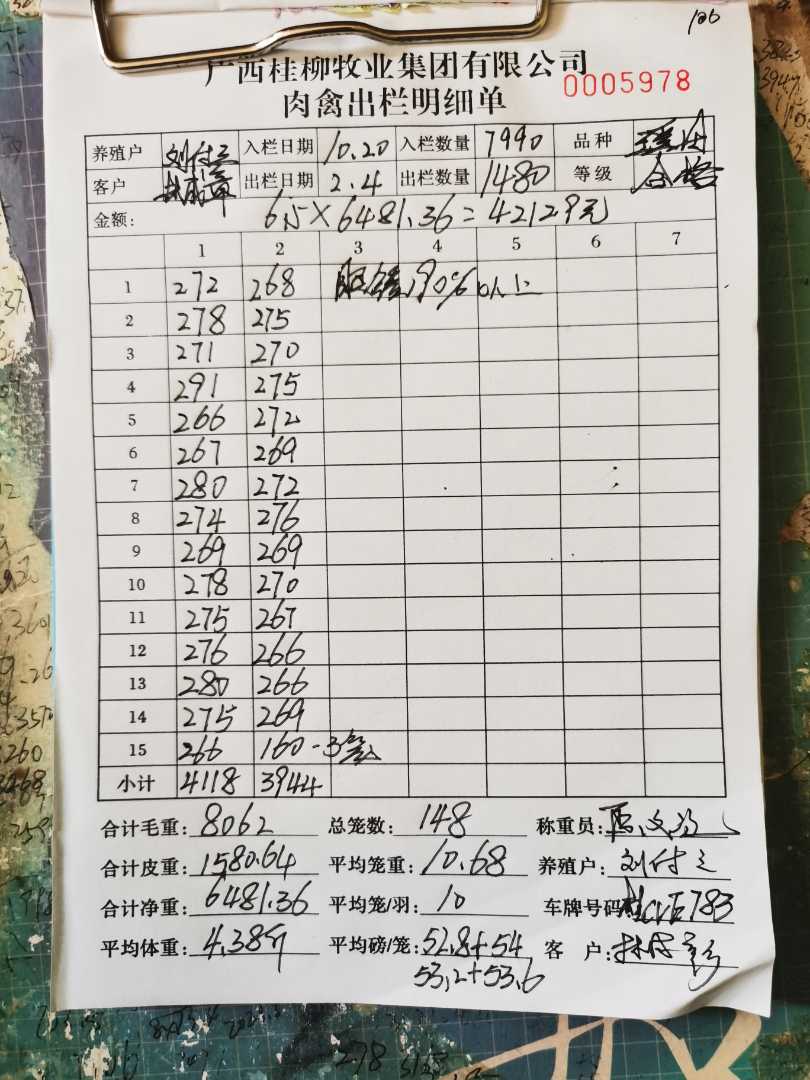 106
广西桂柳牧业集团有限公司
0005978
肉禽出栏明细单
养殖户 刘付三 入栏日期 10.20 入栏数量 7990 品种
客户 出栏日期 2.4 出栏数量 1480 等级 合格
金额: 6.5×6481.36=42129元
1 2 3 4 5 6 7
1 272 268 90%以上
2 278 275
3 271 270
4 291 275
5 266 272
6 267 269
7 280 272
8 274 276
9 269 269
10 278 270
11 275 267
12 276 266
13 280 266
14 275 269
15 266 160-3笼
小计 4118 3944
合计毛重: 8062 总笼数: 148 称重员:
合计皮重: 1580.64 平均笼重: 10.68 养殖户: 刘付三
合计净重: 6481.36 平均笼/羽: 10 车牌号码
平均体重: 4.38斤 平均磅/笼: 52.8+54 客户:
53.2+53.6